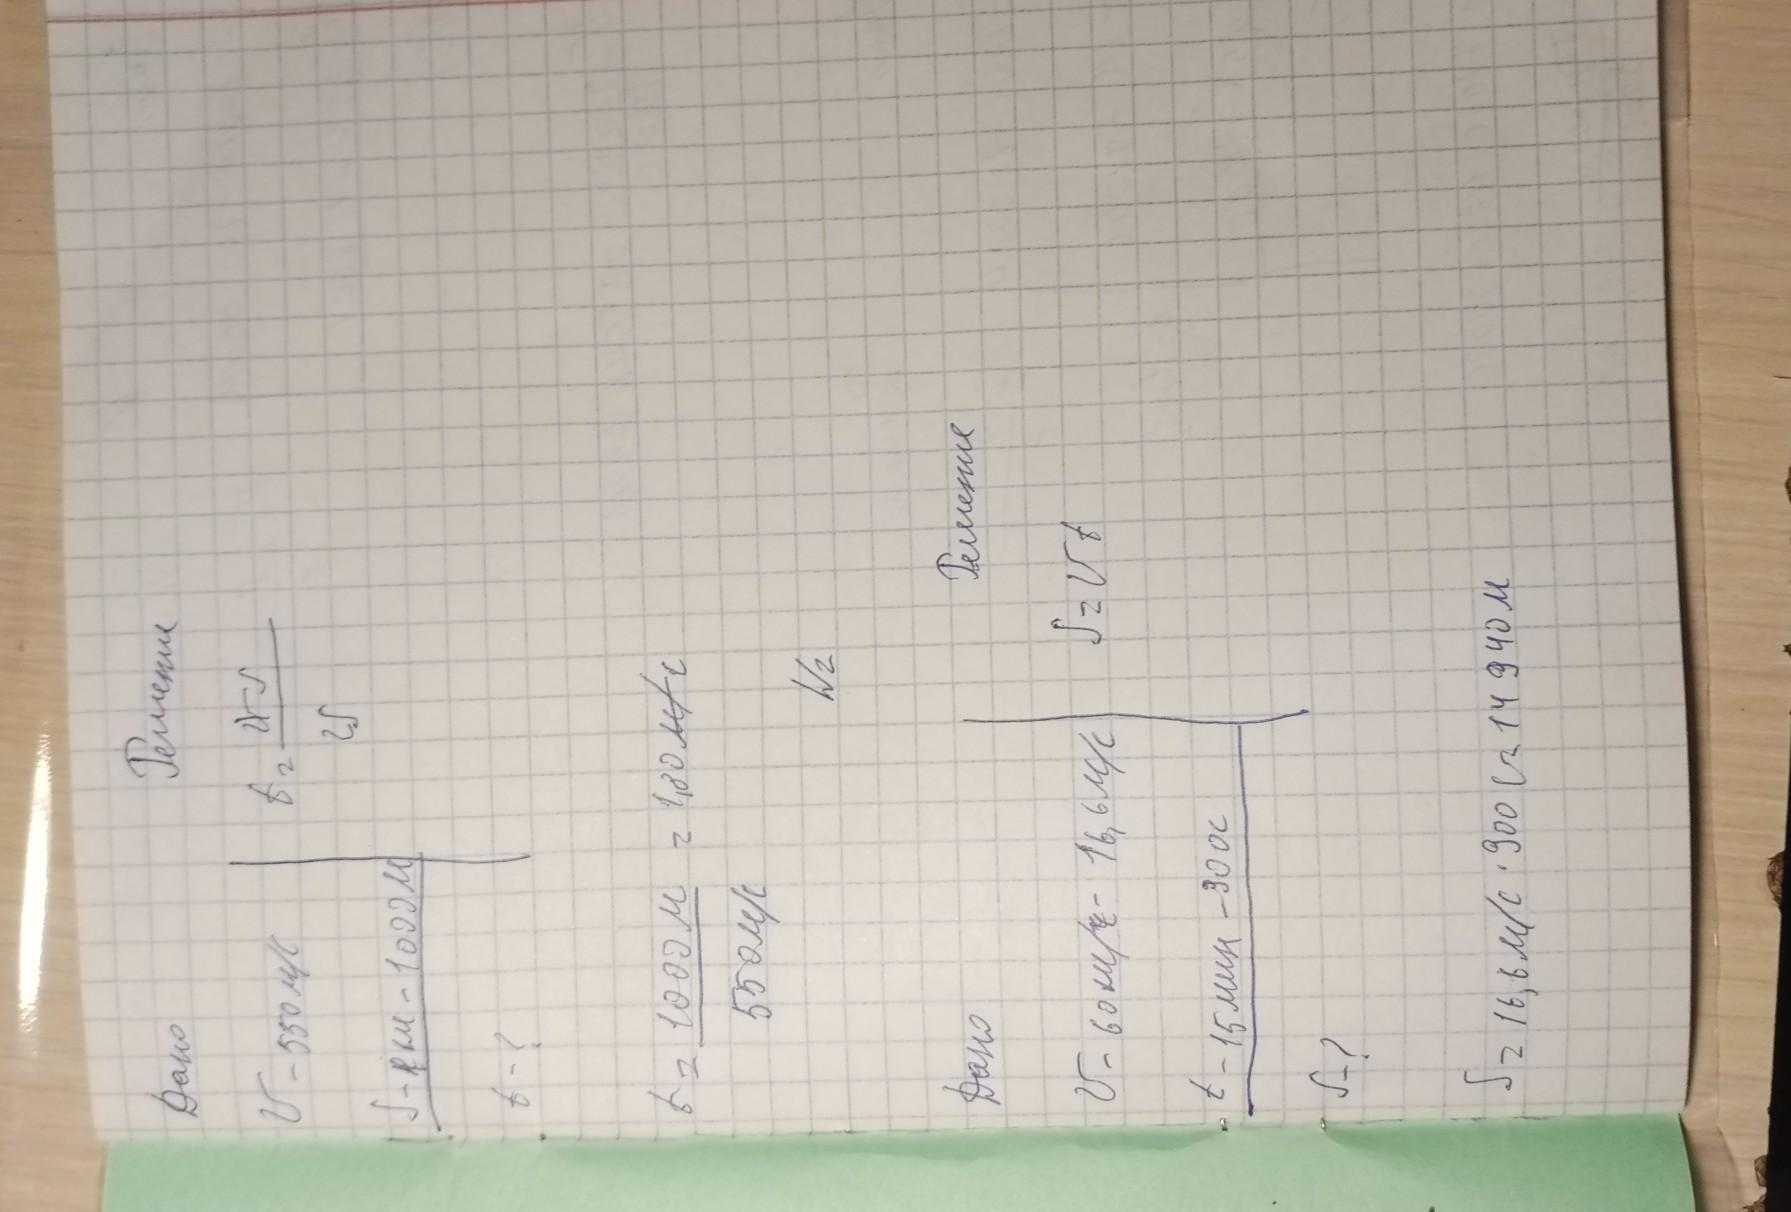 Дано Решение
V - 550 м/с t = S
S - 1 км - 1000 м V
t - ?
t = 1000 м = 1,80 с
550 м/с
N2
Дано Решение
V - 60 км/ч - 16,6 м/с S = V t
t - 15 мин - 900 с
S - ?
S = 16,6 м/с · 900 с = 14 940 м